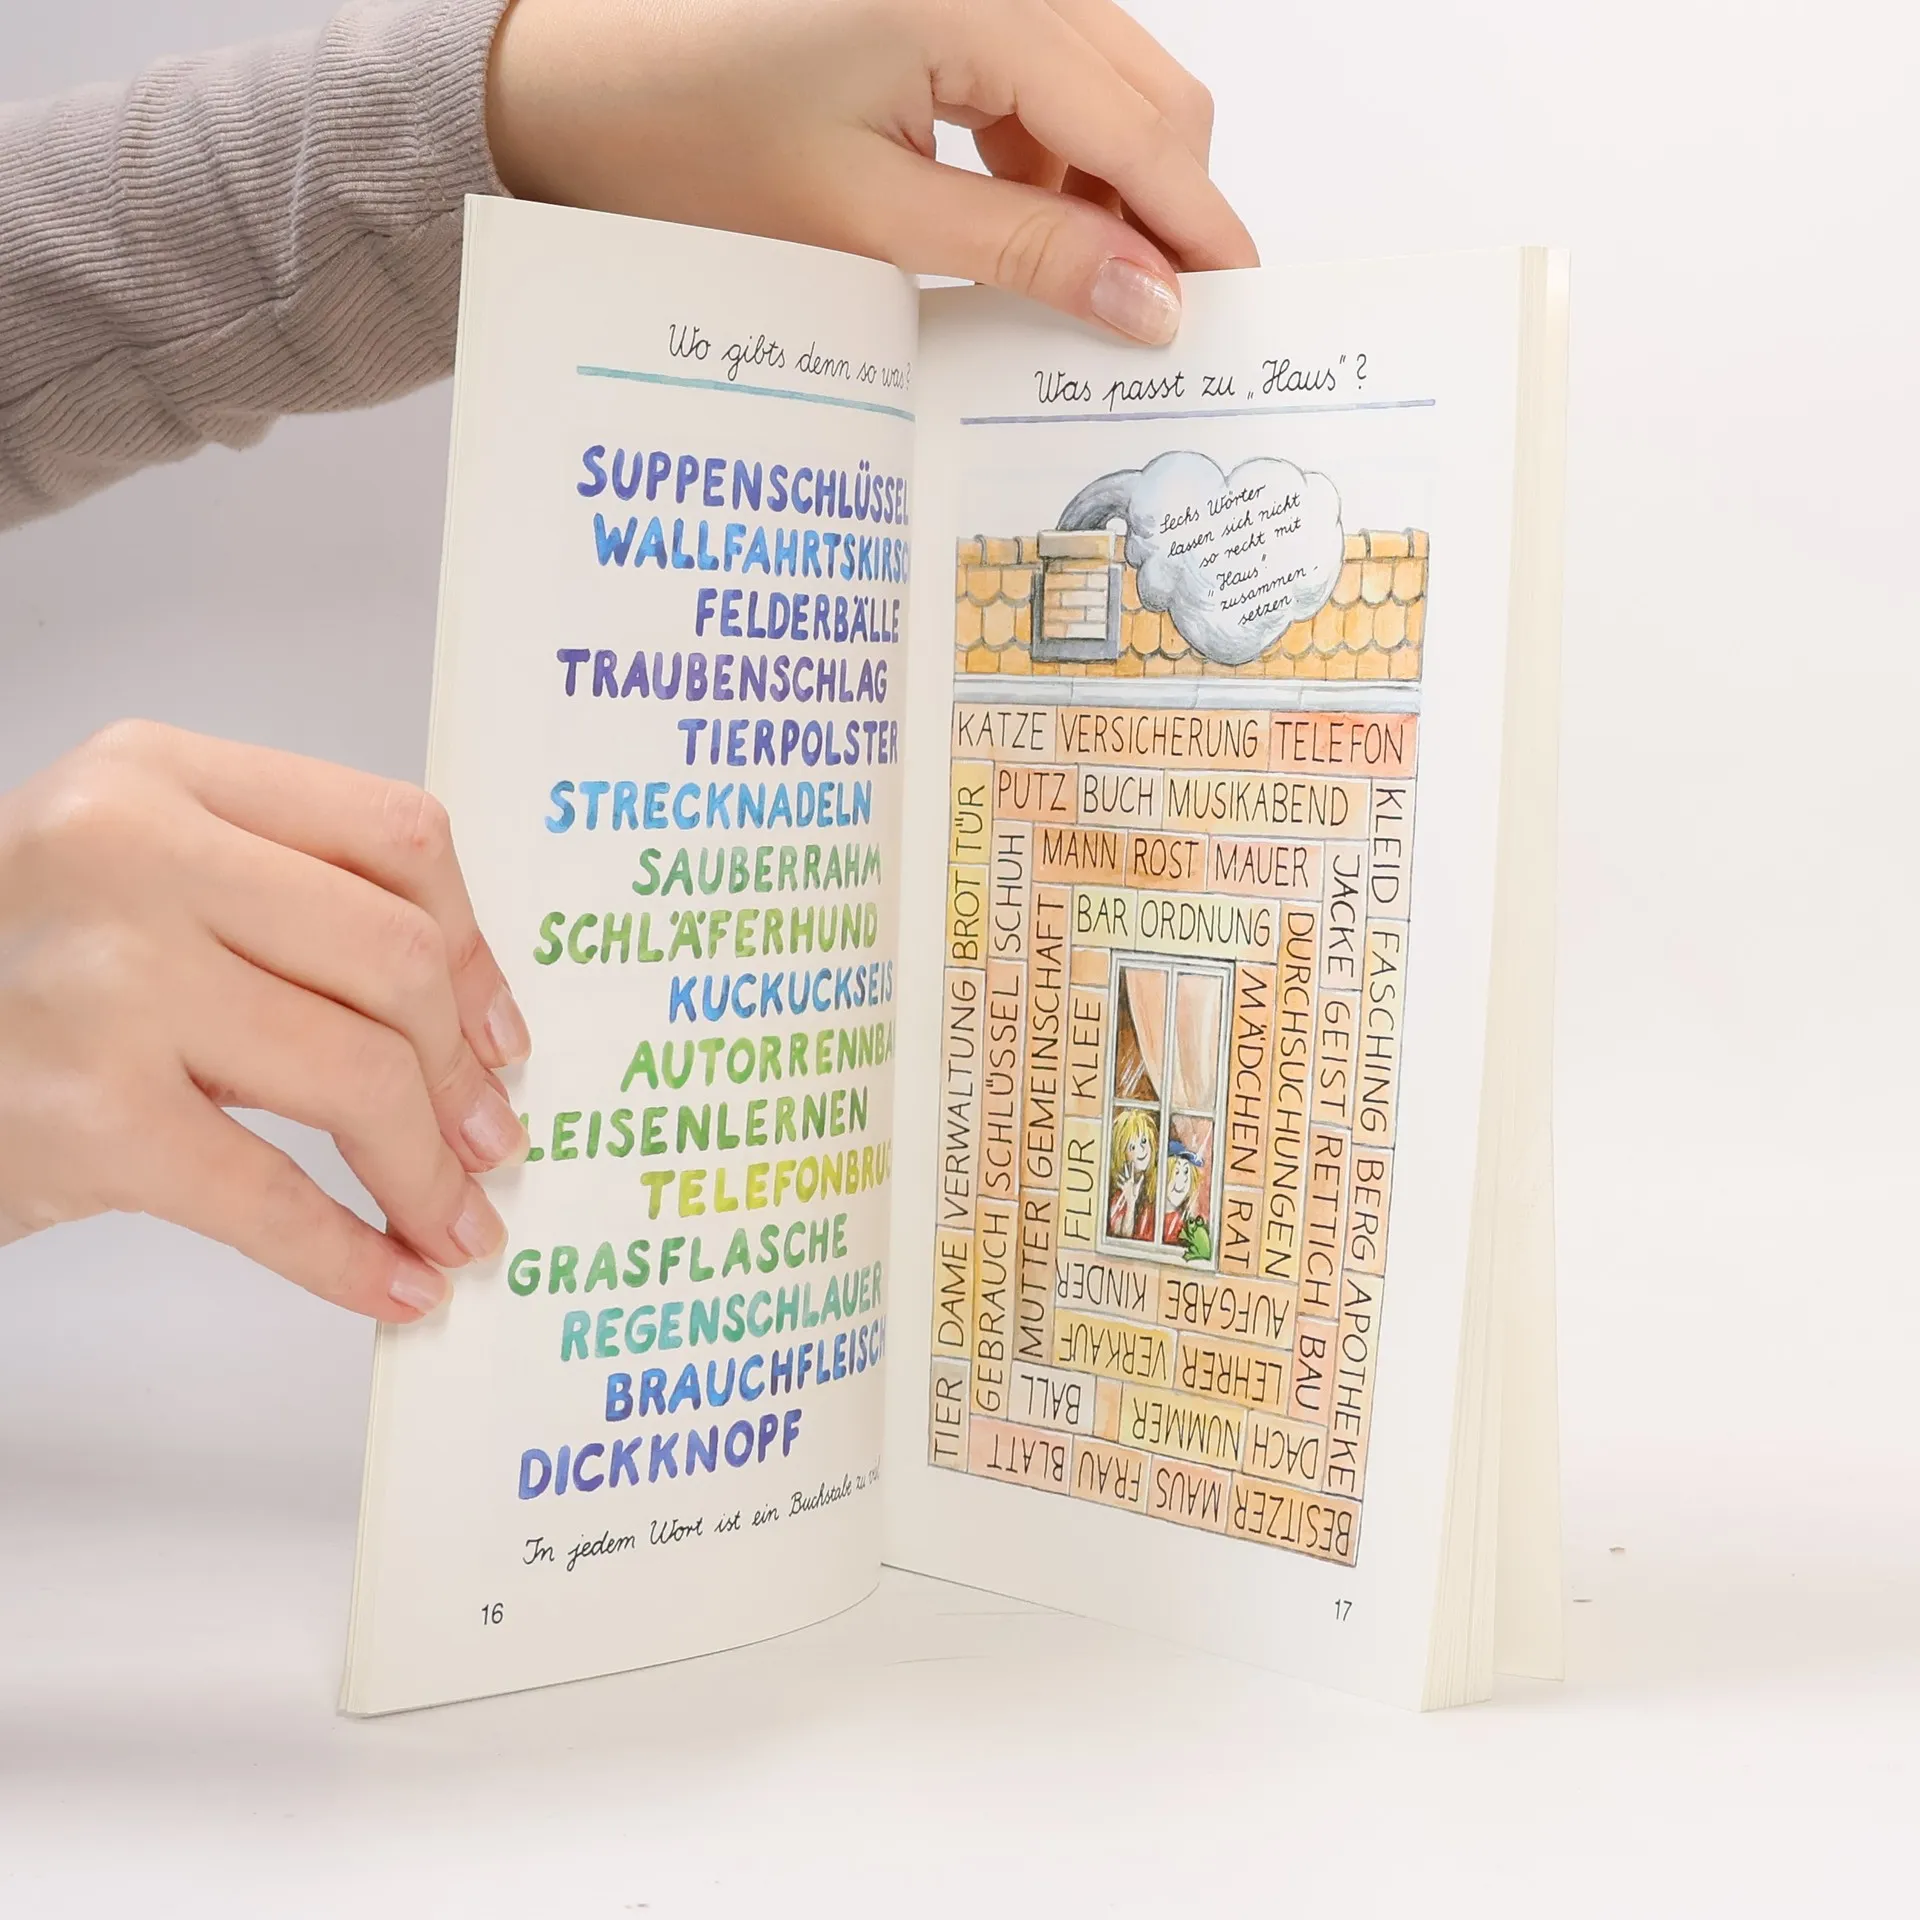 Wo gibts denn so was?
SUPPENSCHLÜSSEL
WALLFAHRTSKIRSC
FELDERBÄLLE
TRAUBENSCHLAG
TIERPOLSTER
STRECKNADELN
SAUBERRAHM
SCHLÄFERHUND
KUCKUCKSEIS
AUTORRENNBA
LEISENLERNEN
TELEFONBRUC
GRASFLASCHE
REGENSCHLAUER
BRAUCHFLEISCH
DICKKNOPF
In jedem Wort ist ein Buchstabe zu viel
16
Was passt zu „Haus"?
Sechs Wörter
lassen sich nicht
so recht mit
„Haus"
zusammen-
setzen.
KATZE VERSICHERUNG TELEFON
KLEID FASCHING BERG APOTHEKE
BESITZER MAUS FRAU BLATT
TIER DAME VERWALTUNG BROT TÜR
PUTZ BUCH MUSIKABEND
JACKE GEIST RETTICH BAU
DACH NUMMER BALL
GEBRAUCH SCHLÜSSEL SCHUH
MANN ROST MAUER
DURCHSUCHUNGEN
LEHRER VERKAUF
MUTTER GEMEINSCHAFT
BAR ORDNUNG
MÄDCHEN RAT
AUFGABE KINDER
FLUR KLEE
17